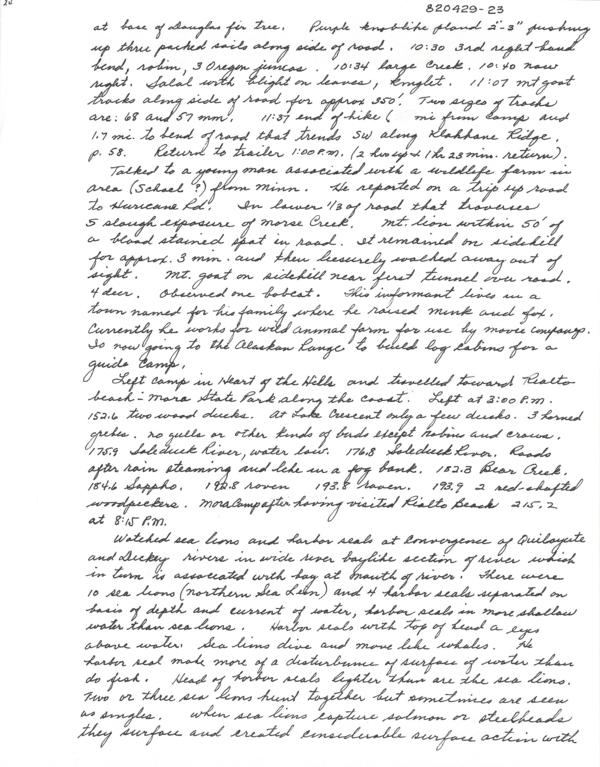 820429-23
at base of Douglas fir tree. Purple knoblike pland 2"-3" pushing
up thru packed soils along side of road. 10:30 3rd right hand
bend, robin, 3 Oregon juncos. 10:34 large Creek. 10:40 now
right. Salal with blight on leaves, kinglet. 11:07 mt goat
tracks along side of road for approx 350'. Two sizes of tracks
are: 68 and 57 mm. 11:37 end of hike ( mi from camp and
1.7 mi. to bend of road that trends SW along Klahhane Ridge.
p. 58. Return to trailer 1:00 P.M. (2 hrs up + 1 hr 23 min. return).
Talked to a young man associated with a wildlife farm in
area (School ?) from Minn. He reported on a trip up road
to Huricane Rd. In lower 1/3 of road that traverses
S slough exposure of Morse Creek. Mt. lion within 50' of
a blood stained spot in road. It remained on sidehill
for approx. 3 min. and then leisurely walked away out of
sight. Mt. goat on sidehill near first tunnel over road.
4 deer. Observed one bobcat. This informant lives in a
town named for his family where he raised mink and fox.
Currently he works for wild animal farm for use by movie companys.
Is now going to the Alaskan Range to build log cabins for a
guide camp.
Left camp in Heart of the Hills and travelled toward Rialto
beach - Mora State Park along the coast. Left at 3:00 P.M.
152.6 two wood ducks. At Lake Crescent only a few ducks. 3 horned
grebes. no gulls or other kinds of birds except robins and crows.
175.9 Soleduck River, water low. 176.8 Soleduck River. Roads
after rain steaming and like in a fog bank. 182.3 Bear Creek.
184.6 Sappho. 192.8 raven 193.8 raven. 193.9 2 red-shafted
woodpeckers. Mora Camp after having visited Rialto Beach 215.2
at 8:15 P.M.
Watched sea lions and harbor seals at Convergence of Quilayute
and Dickey rivers in wide river baylike section of river which
in turn is associated with bay at mouth of river. There were
10 sea lions (northern Sea Lion) and 4 harbor seals separated on
basis of depth and current of water, harbor seals in more shallow
water than sea lions. Harbor seals with top of head & eyes
above water. Sea lions dive and move like whales. The
harbor seal make more of a disturbance of surface of water than
do fish. Head of harbor seals lighter than are the sea lions.
Two or three sea lions hunt together but sometimes are seen
as singles. When sea lions capture salmon or steelheads
they surface and created considerable surface action with